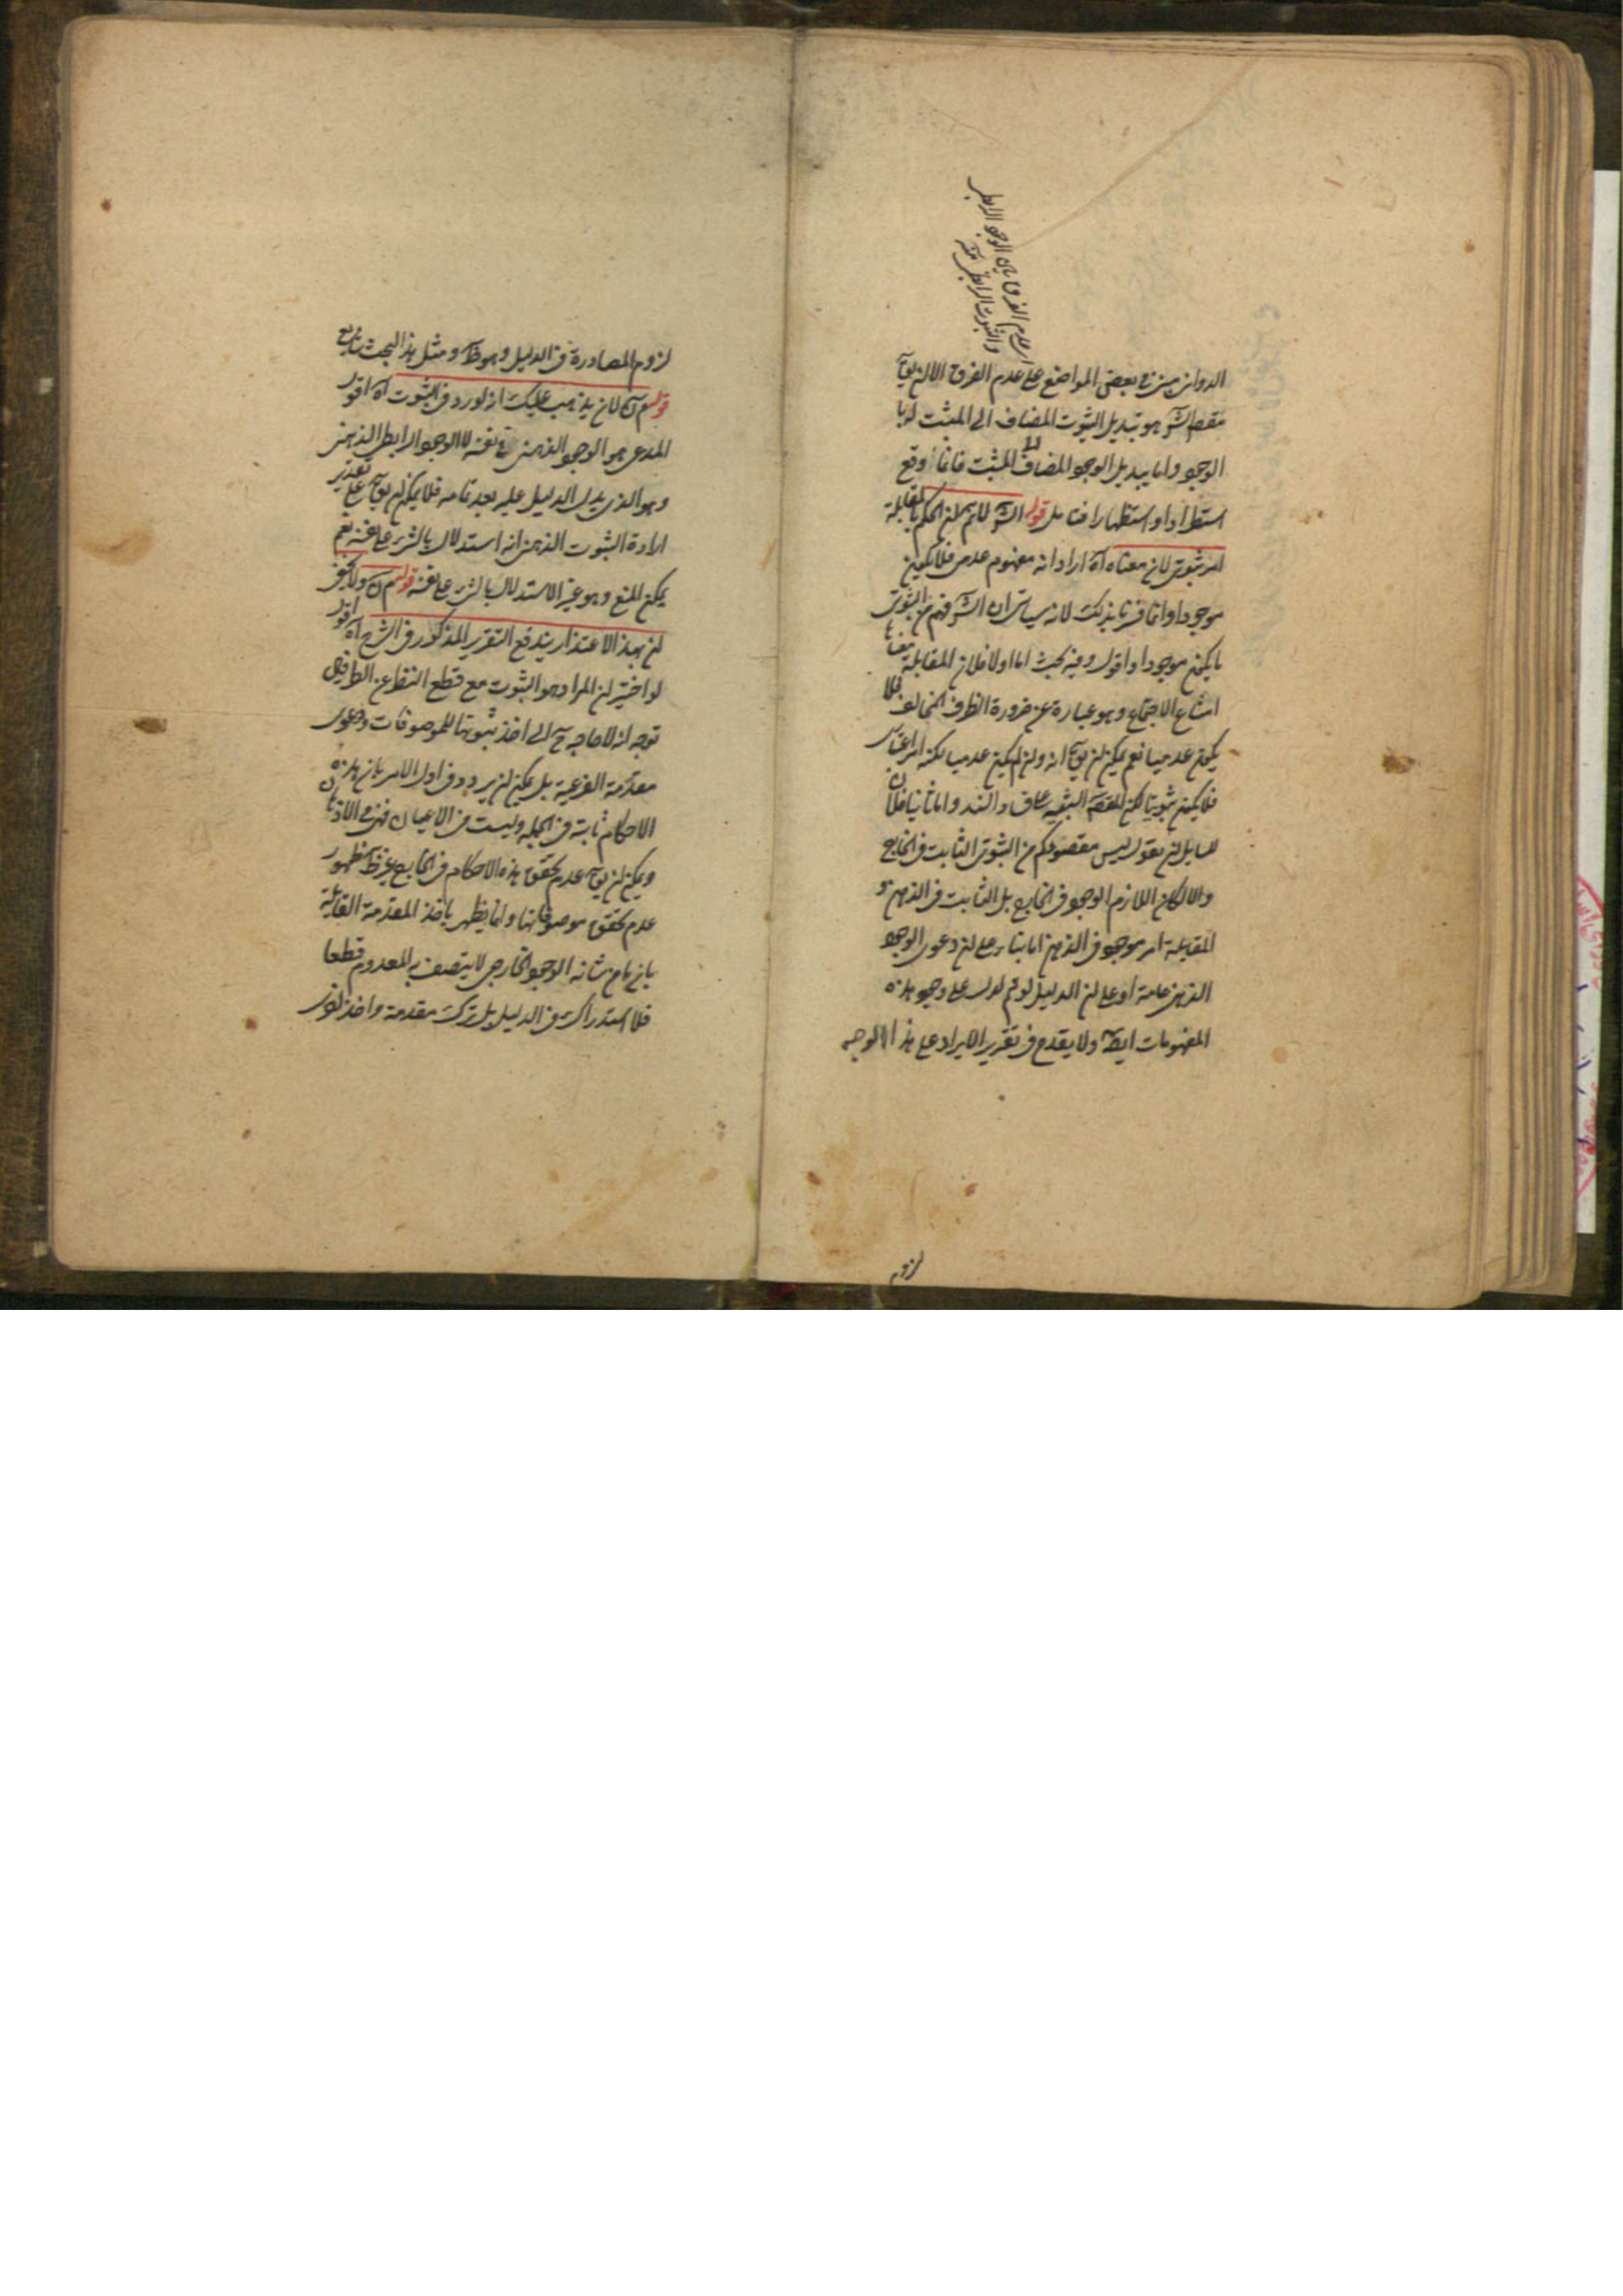 الدوانى مبنى فى بعض المواضع على عدم الفرق الا ان يق
مقصود الش هو تبديل الثبوت المضاف الى المثبت له با
الوجود واما تبديل الوجود المضاف الى المثبت فانما وقع
استطرادا واستظهارا فتامل قوله الش لانم ان الحكم بالمقابلة
امر ثبوتى لان معناه آه اراد انه مفهوم عدمى فلا يكون
موجودا وانما فسرنا بذلك لانه سياتى ان الش فهم من الثبوتى
ما يكون موجودا اقول وفيه بحث اما اولا فلان المقابلة معناها
امتناع الاجتماع وهو عبارة عن ضرورة الطرف المخالف فلا
يكون عدميا نعم يمكن ان يق انه وان لم يكن عدميا لكنه امر اعتبارى
فلا يكون ثبوتيا لكن المقصود واما ثانيا فلان
للسايل ان يقول ليس مقصودكم من الثبوتى الثابت فى الخارج
والا لكان اللازم الوجود فى الخارج بل الثابت فى الذهن و
المقابلة امر موجود فى الذهن اما بناء على ان دعوى الوجود
الذهنى عامة او على ان الدليل لو تم لدل على وجود هذه
المفهومات ايضا ولا يقدح فى تقرير الايراد على هذا الوجه
لزوم
لزوم المصادرة فى الدليل وهو ظ ومثل هذا البحث شايع
قوله لان يذهب عليك انه لو رد فى الثبوت آه اقول
المدعى هو الوجود الذهنى فى نفسه لا الوجود الرابطى الذهنى
وهو الذى يدل الدليل عليه بعد تمامه فلا يمكن ان يق على تقدير
ارادة الثبوت الذهنى انه استدلال بالشئ على نفسه نعم
يمكن المنع وهو غير الاستدلال بالشئ على نفسه قوله ولا يخفى
ان بهذا الاعتذار يندفع التقرير المذكور فى الشرح آه اقول
لو اختير ان المراد هو الثبوت مع قطع النظر عن الطرفين
توجه انه لا حاجة ح الى اخذ ثبوتها للموصوفات ودعوى
مقدمة الفرعية بل يمكن ان يردد فى اول الامر بان هذه
الاحكام ثابتة فى الجملة وليست فى الاعيان فهى فى الاذهان
ويمكن ان يق عدم تحقق هذه الاحكام فى الخارج غير ظ لظهور
عدم تحقق موصوفاتها وانما يظهر باخذ المقدمة القائلة
بان ما من شانه الوجود الخارجى لا يتصف به المعدوم قطعا
فلا استدراك فى الدليل بل ترك مقدمة واخذ اخرى